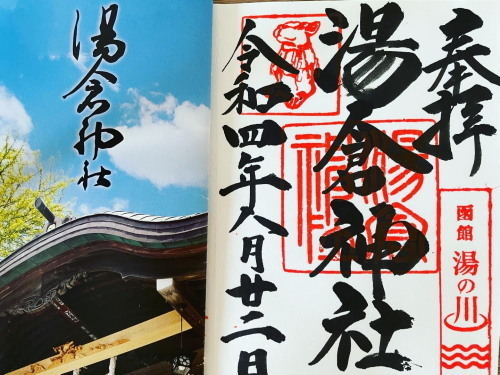 湯倉神社
奉拝
湯倉神社
令和四年八月廿二日
函館
湯の川